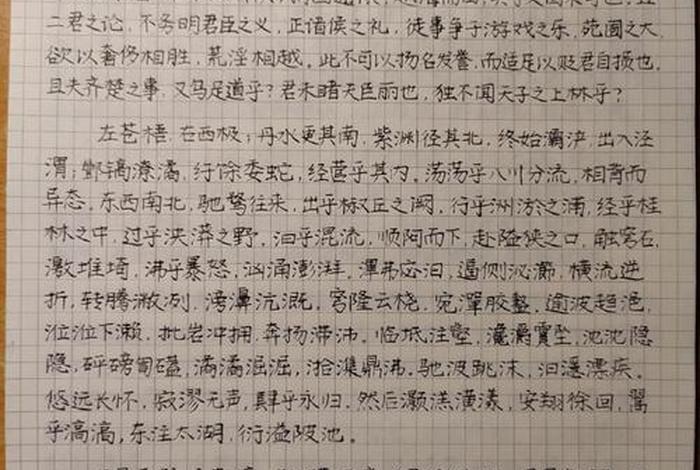 二君之论，不务明君臣之义，正诸侯之礼，徒事争于游戏之乐，苑囿之大，
欲以奢侈相胜，荒淫相越。此不可以扬名发誉，而适足以贬君自损也。
且夫齐楚之事，又乌足道乎？君未睹夫巨丽也，独不闻天子之上林乎？
左苍梧，右西极；丹水更其南，紫渊径其北，终始灞浐，出入泾
渭；酆镐潦潏，纡馀委蛇，经营乎其内。荡荡乎八川分流，相背而
异态。东西南北，驰骛往来，出乎椒丘之阙，行乎洲淤之浦，经乎桂
林之中，过乎泱漭之野。汩乎混流，顺阿而下，赴隘狭之口，触穹石，
激堆埼，沸乎暴怒，汹涌澎湃。滭弗宓汩，逼侧泌瀄，横流逆
折，转腾潎洌，滂濞沆溉。穹隆云桡，宛潬胶盭，逾波趋浥，
涖涖下濑，批岩冲拥，奔扬滞沛。临坻注壑，瀺灂霣坠，沈沈隐
隐，砰磅訇磕，潏潏淈淈，湁潗鼎沸。驰波跳沫，汩漂疾。
悠远长怀，寂漻无声，肆乎永归。然后灏溔潢漾，安翔徐回，翯
乎滈滈，东注太湖，衍溢陂池。